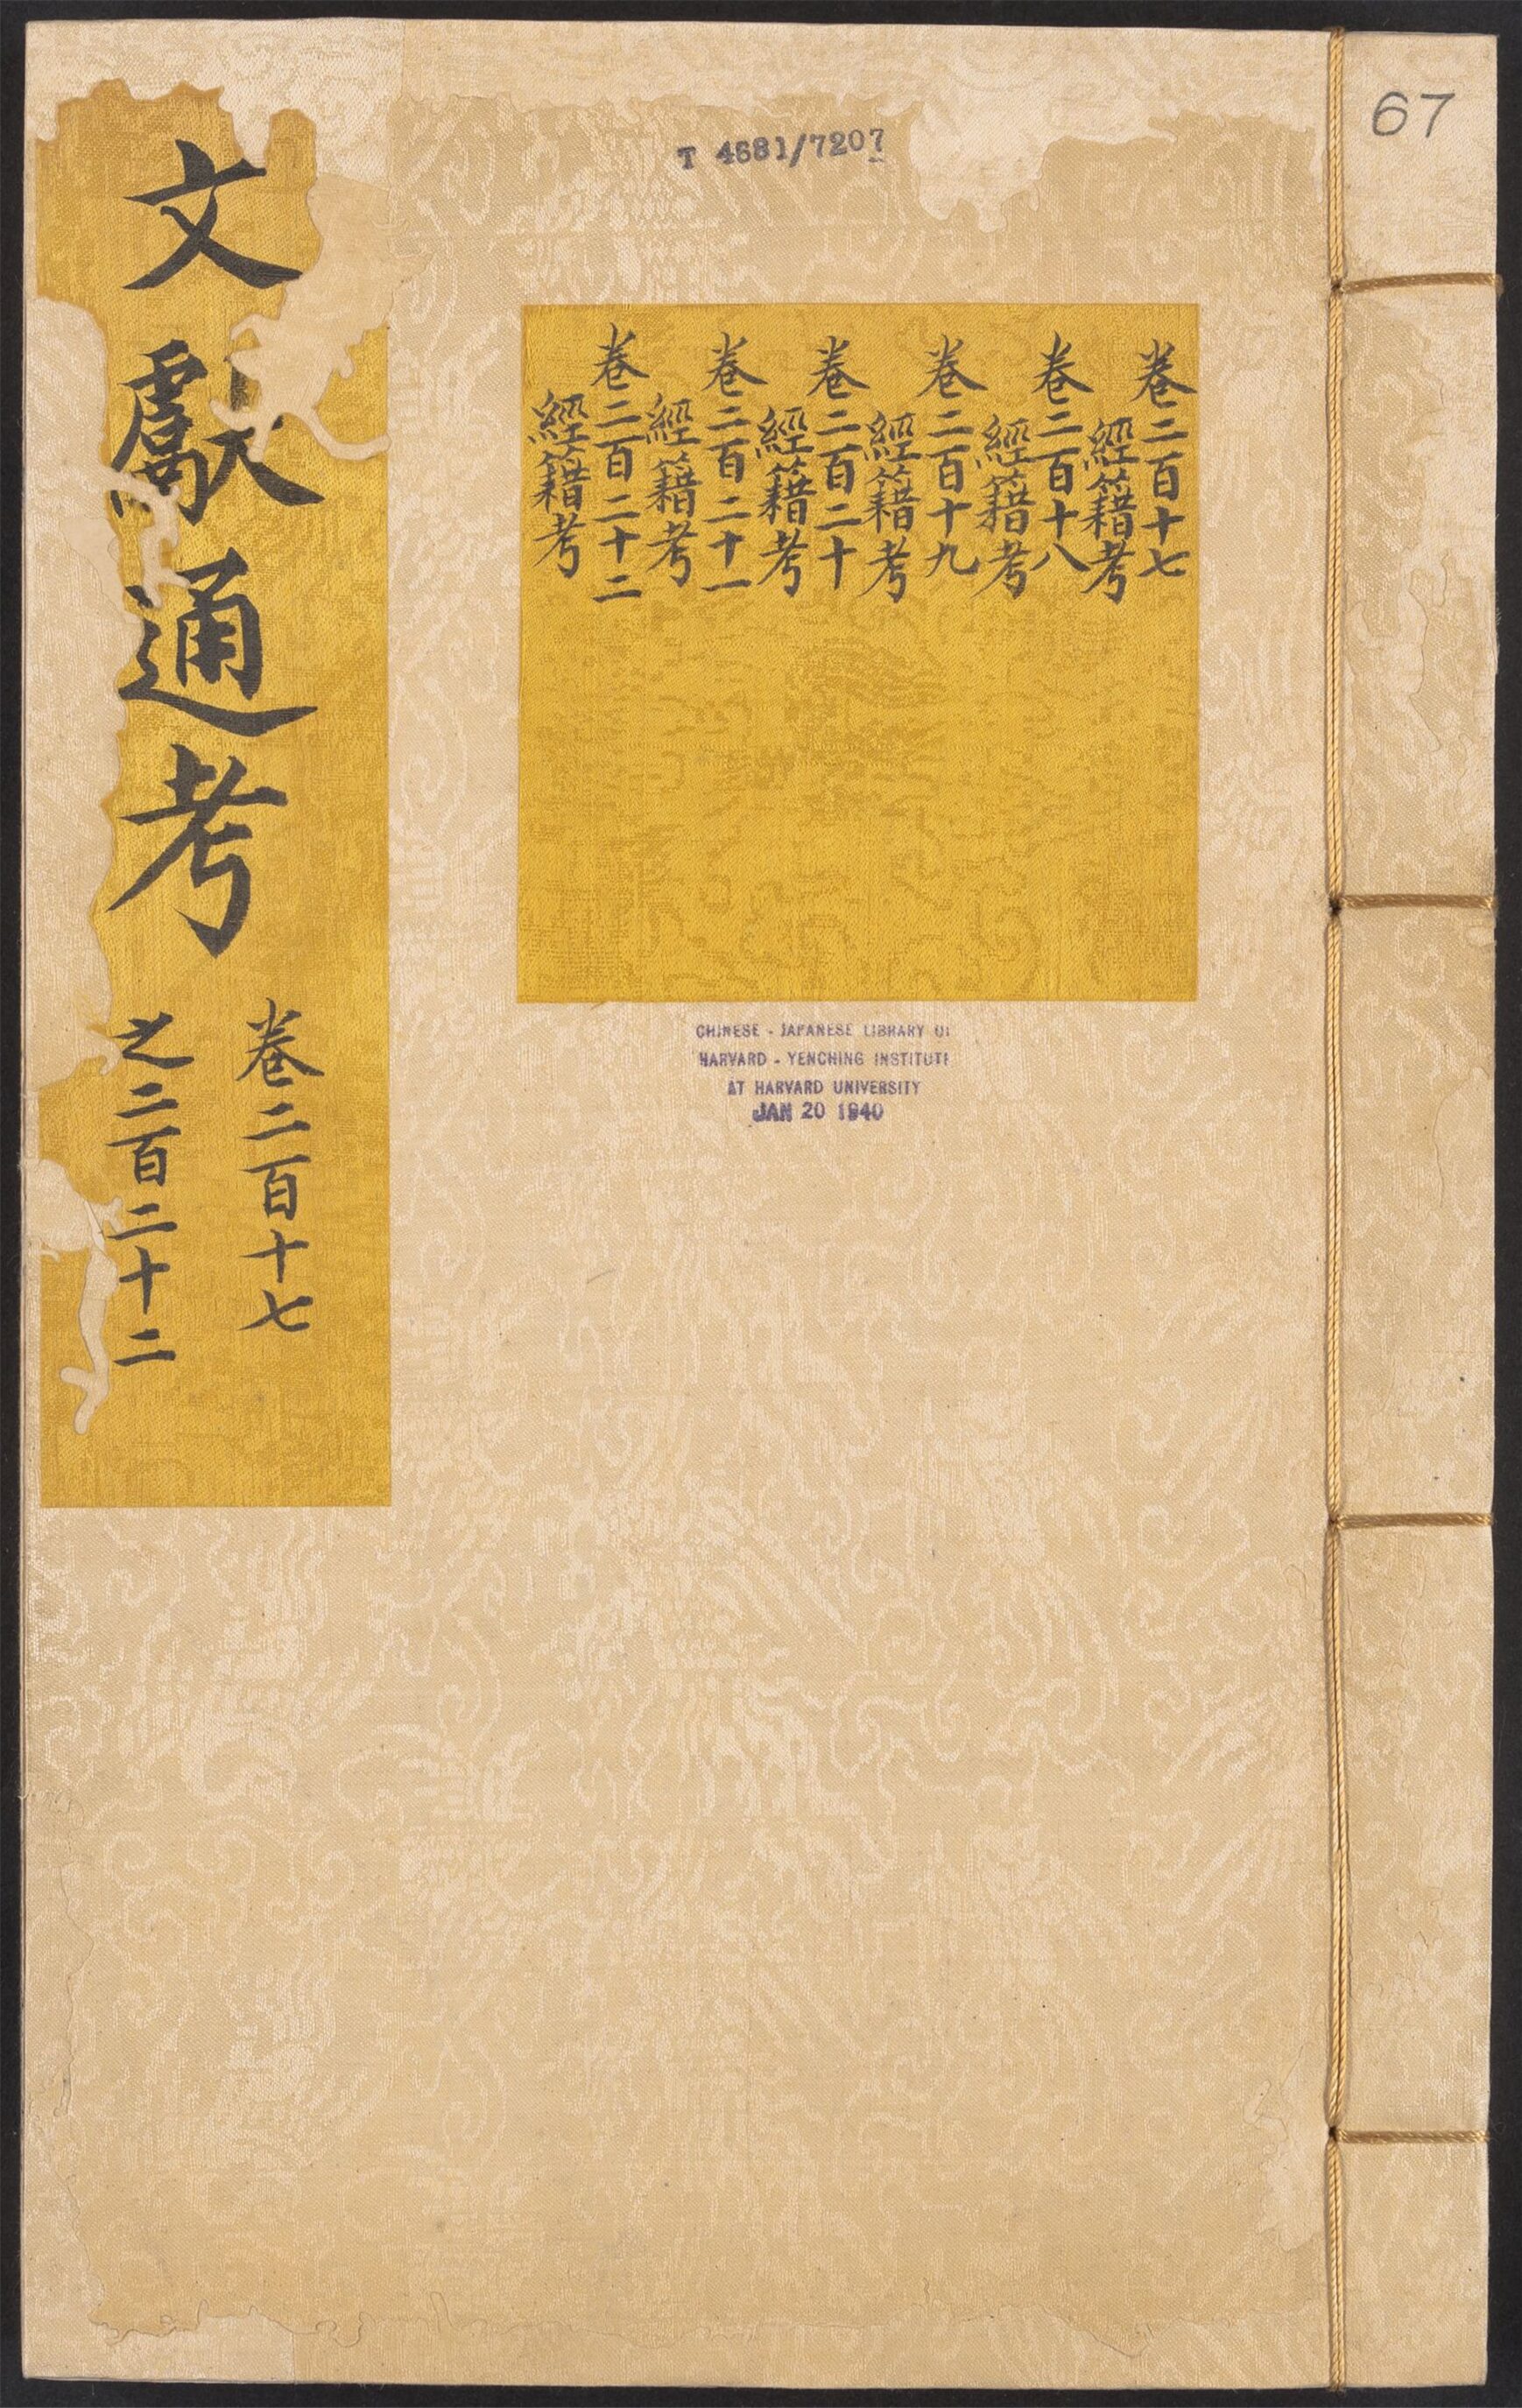 67
T 4681/7207
卷二百十七
經籍考
卷二百十八
經籍考
卷二百十九
經籍考
卷二百二十
經籍考
卷二百二十一
經籍考
卷二百二十二
經籍考
文獻通考
卷二百十七
之二百二十二
CHINESE - JAPANESE LIBRARY OF
HARVARD - YENCHING INSTITUTE
AT HARVARD UNIVERSITY
JAN 20 1940